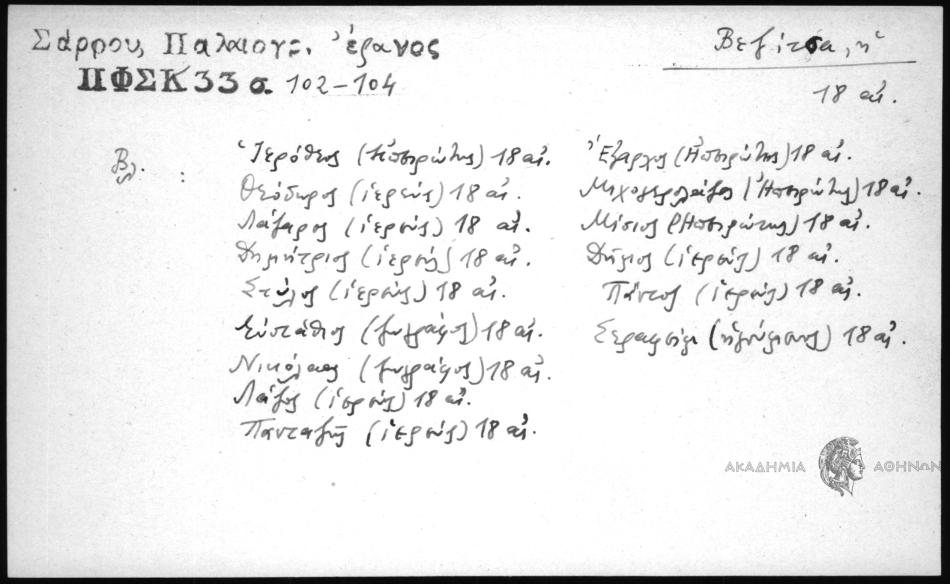 Σάρρου, Παλαιογρ. ἔρανος
ΠΦΣΚ 33 σ. 102-104
Βεζίτσα, ἡ
18 αἰ.
Βλ. :
Ἱερόθεος (Ἠπειρώτης) 18 αἰ.
Θεόδωρος (ἱερεύς) 18 αἰ.
Λάζαρος (ἱερεύς) 18 αἰ.
Δημήτριος (ἱερεύς) 18 αἰ.
Στῦλος (ἱερεύς) 18 αἰ.
Εὐστάθιος (ζωγράφος) 18 αἰ.
Νικόλαος (ζωγράφος) 18 αἰ.
Λάζος (ἱερεύς) 18 αἰ.
Πανταζῆς (ἱερεύς) 18 αἰ.
Ἔξαρχος (Ἠπειρώτης) 18 αἰ.
(Ἠπειρώτης) 18 αἰ.
Μίσιος (Ἠπειρώτης) 18 αἰ.
Δήμος (ἱερεύς) 18 αἰ.
Πάντος (ἱερεύς) 18 αἰ.
Σεραφείμ (ἡγούμενος) 18 αἰ.
ΑΚΑΔΗΜΙΑ ΑΘΗΝΩΝ